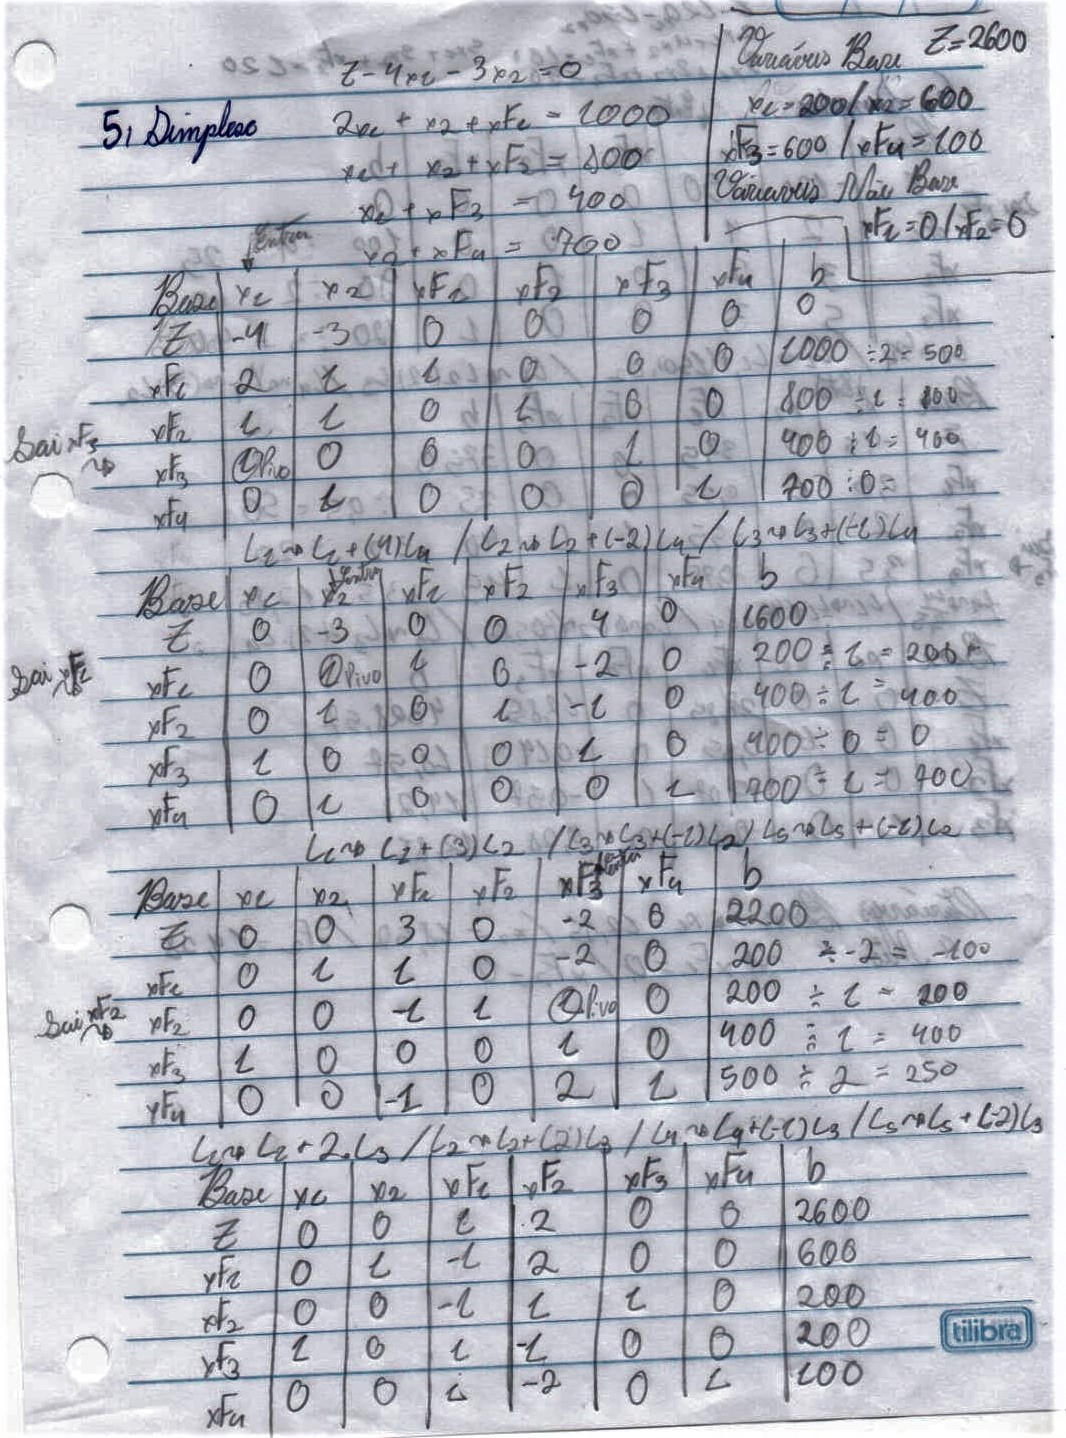 Z - 4x1 - 3x2 = 0
5, Simplexo
2x1 + x2 + xF1 = 1000
x1 + x2 + xF2 = 800
x1 + xF3 = 400
x2 + xF4 = 700
Variáveis Base Z=2600
x1=200/x2=600
xF3=600/xF4=100
Variáveis Não Base
xF1=0/xF2=0
Entra
Base x1 x2 xF1 xF2 xF3 xF4 b
Z -4 -3 0 0 0 0 0
xF1 2 1 1 0 0 0 1000 ÷2= 500
xF2 1 1 0 1 0 0 800 ÷1= 800
Sai xF3
xF3 1 Pivo 0 0 0 1 0 400 ÷1= 400
xF4 0 1 0 0 0 1 700 ÷0=
L1→L1+(4)L4 / L2→L2+(-2)L4 / L3→L3+(-1)L4
Entra
Base x1 x2 xF1 xF2 xF3 xF4 b
Z 0 -3 0 0 4 0 1600
Sai xF1
xF1 0 1 Pivo 1 0 -2 0 200 ÷1= 200
xF2 0 1 0 1 -1 0 400 ÷1= 400
xF3 1 0 0 0 1 0 400 ÷0= 0
xF4 0 1 0 0 0 1 700 ÷1= 700
L1→L1+(3)L2 / L3→L3+(-1)L2 / L5→L5+(-1)L2
Entra
Base x1 x2 xF1 xF2 xF3 xF4 b
Z 0 0 3 0 -2 0 2200
xF1 0 1 1 0 -2 0 200 ÷-2= -100
Sai xF2
xF2 0 0 -1 1 1 Pivo 0 200 ÷1= 200
xF3 1 0 0 0 1 0 400 ÷1= 400
xF4 0 0 -1 0 2 1 500 ÷2= 250
L1→L1+2.L3 / L2→L2+(2)L3 / L4→L4+(-1)L3 / L5→L5+(-2)L3
Base x1 x2 xF1 xF2 xF3 xF4 b
Z 0 0 1 2 0 0 2600
xF1 0 1 -1 2 0 0 600
xF2 0 0 -1 1 1 0 200
xF3 1 0 1 -1 0 0 200
xF4 0 0 1 -2 0 1 100
tilibra